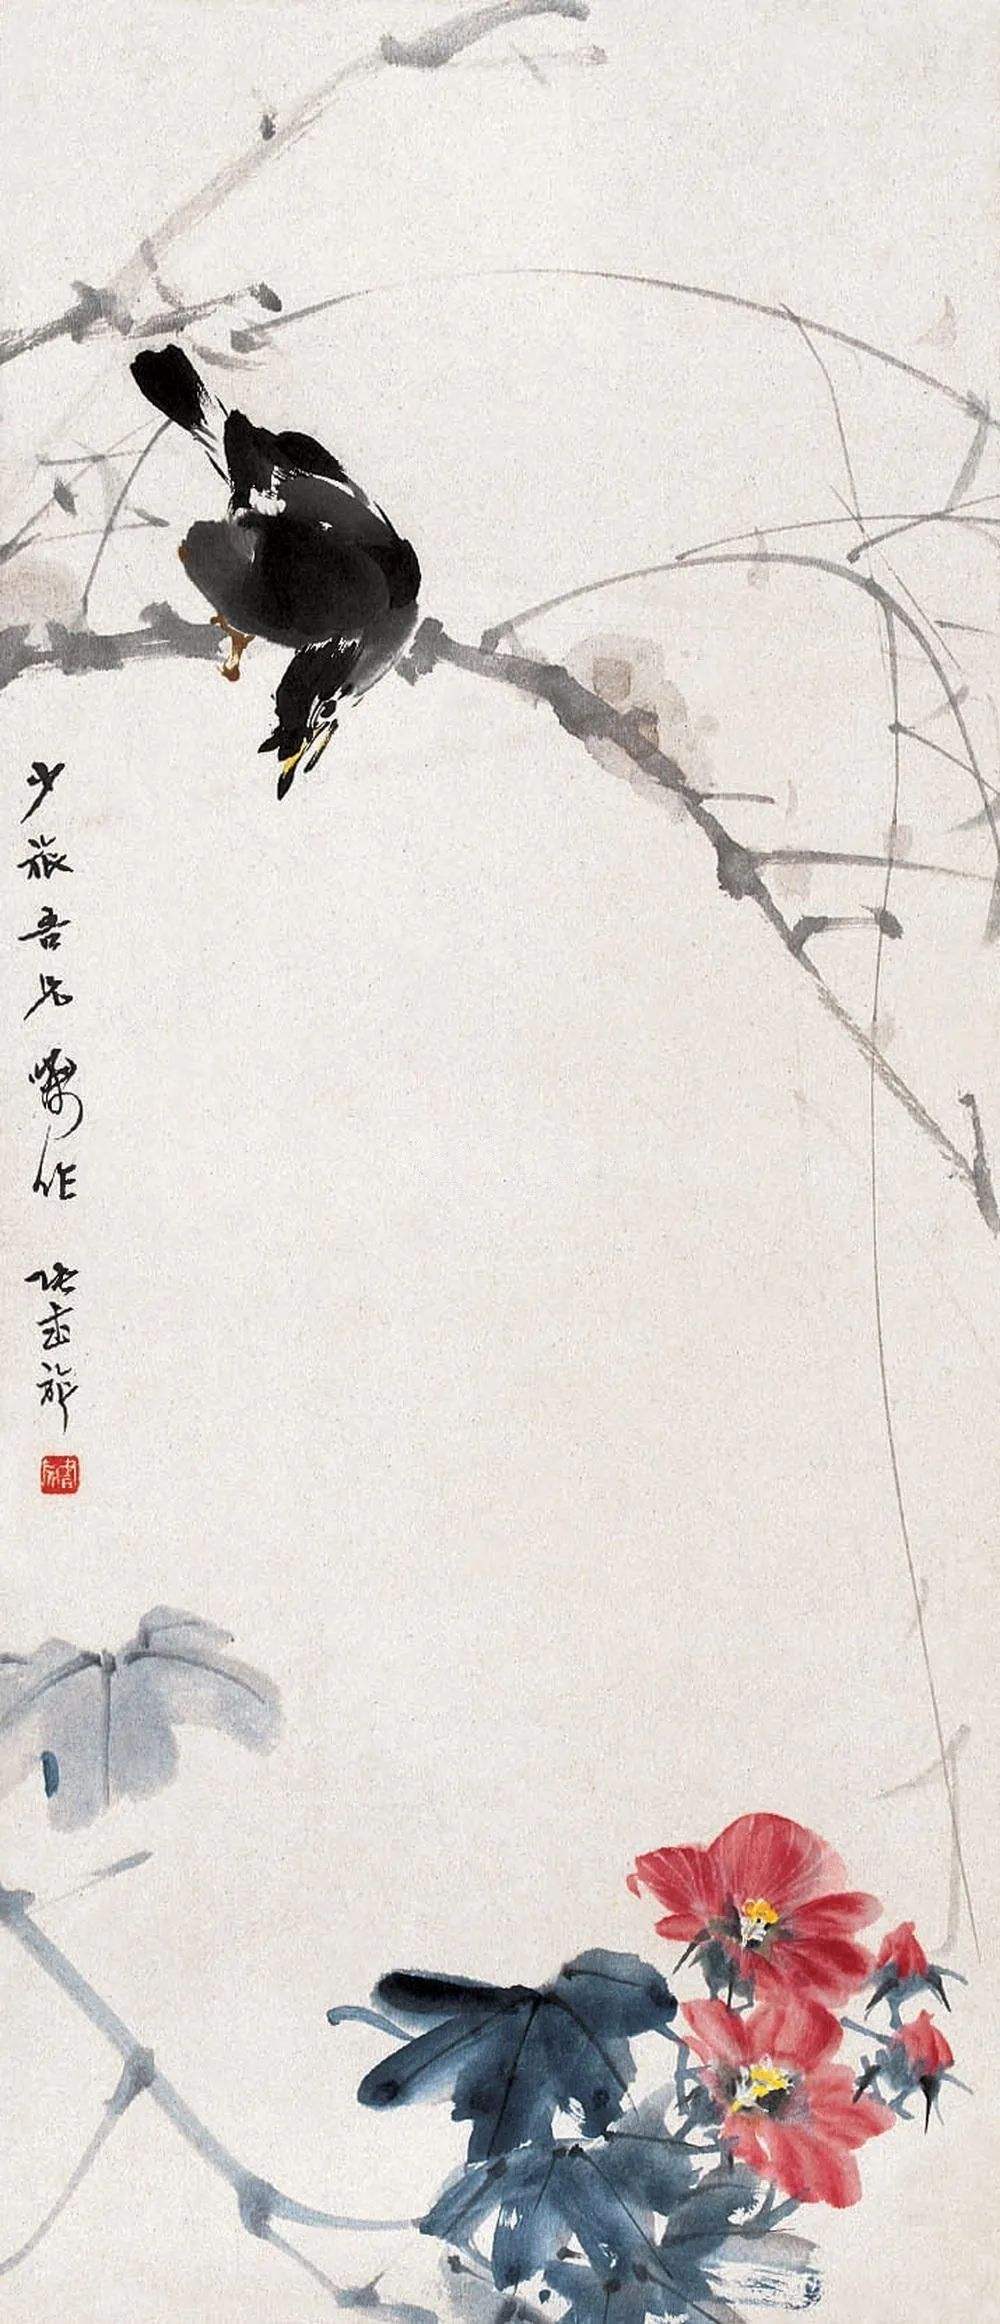 少旅吾兄属作
张书旂